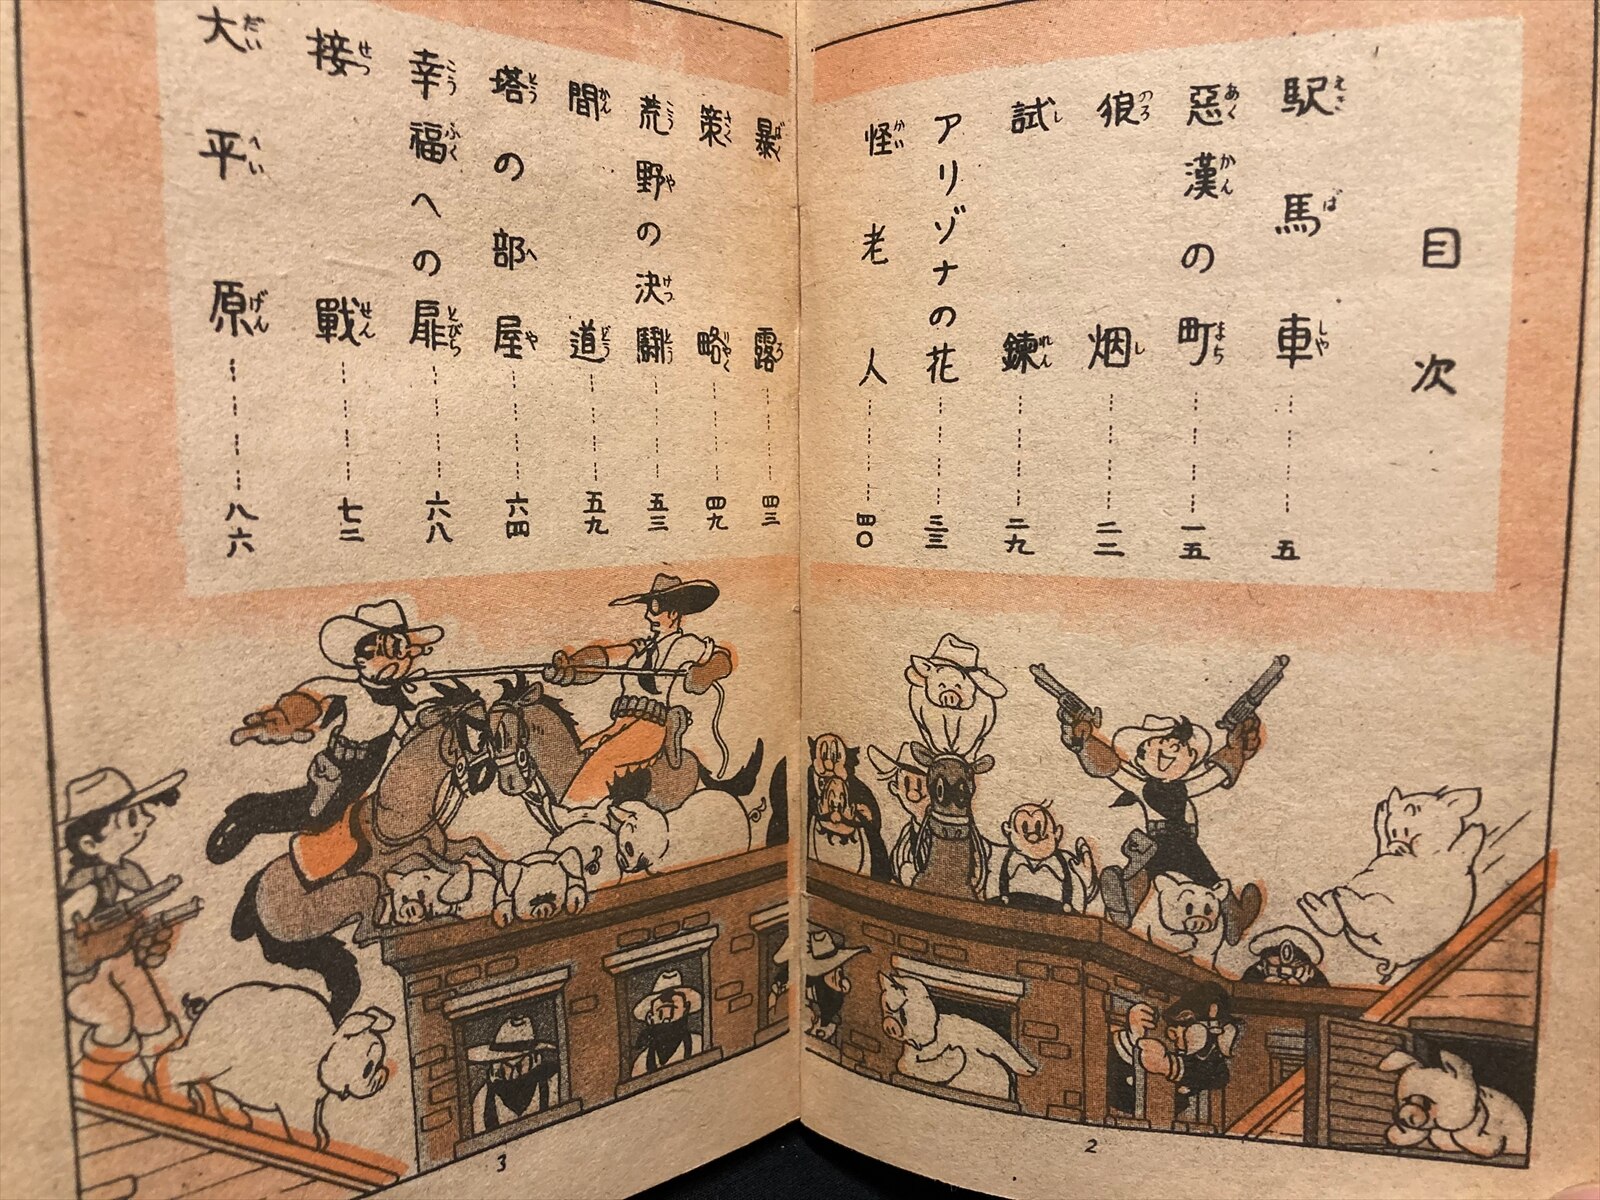 目次
駅馬車………五
惡漢の町………一五
狼烟………二二
試錬………二九
アリゾナの花………三三
怪老人………四〇
暴露………四三
策略………四九
荒野の決鬪………五三
間道………五九
塔の部屋………六四
幸福への扉………六八
接戰………七二
大平原………八六
2
3